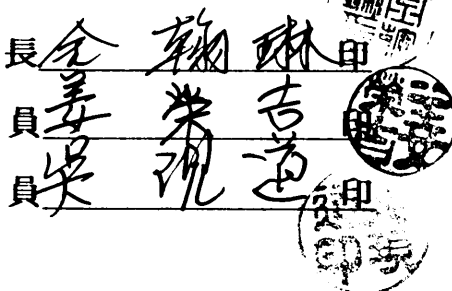 長 全翰琳 印
員 姜榮吉 印
員 吳現道 印